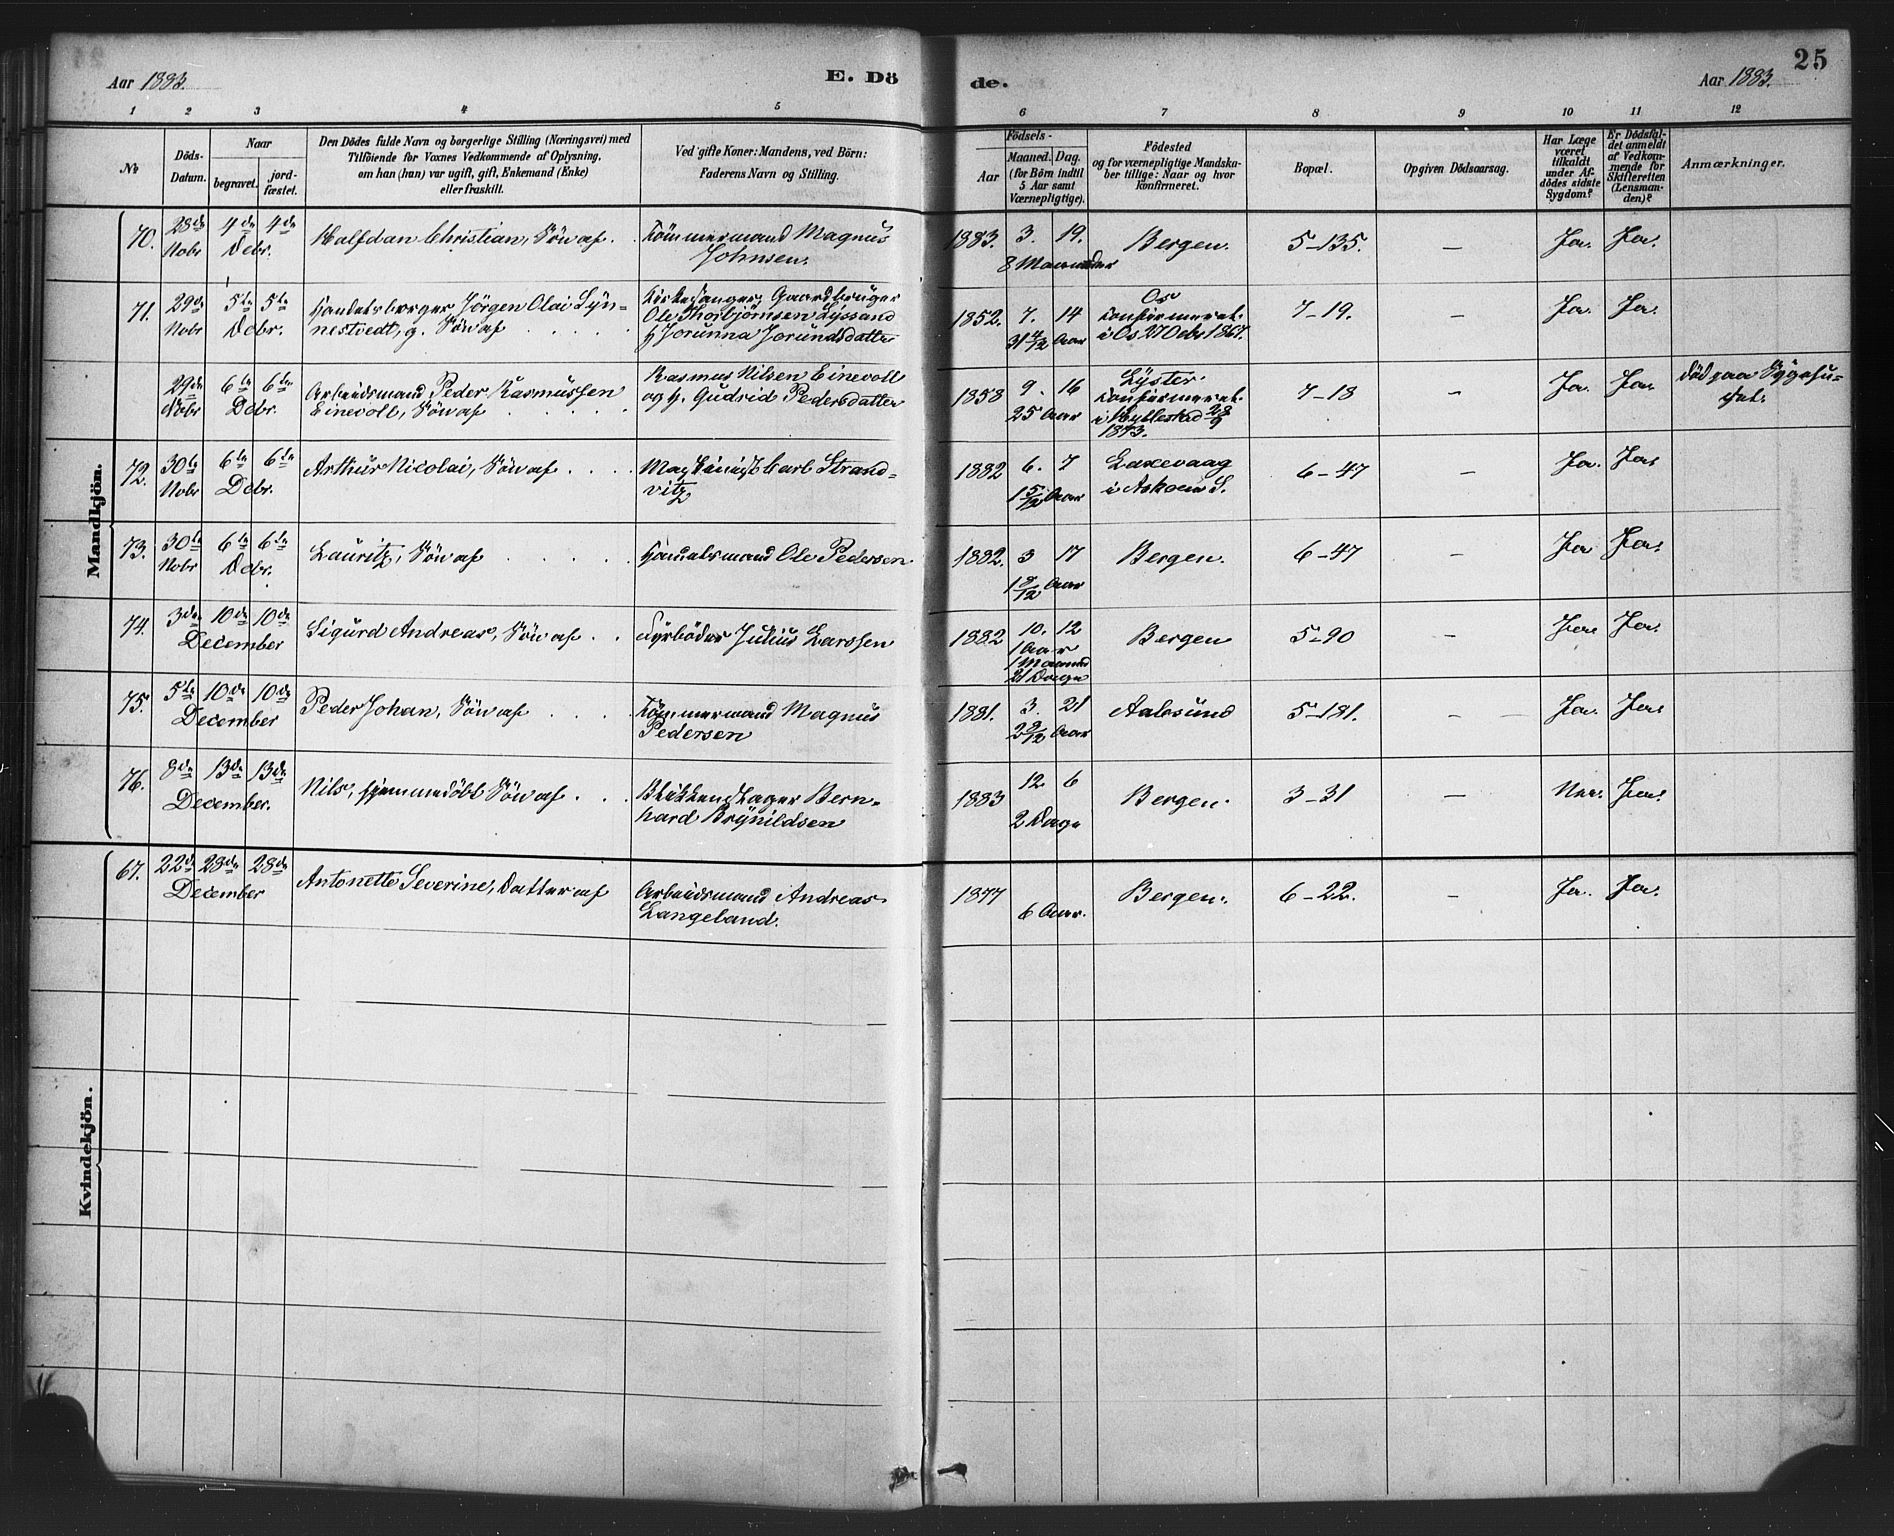 25
Aar 1883. E. Dö de. Aar 1883.
1 2 3 4 5 6 7 8 9 10 11 12
No
Döds-Datum.
Naar
begravet.
jord-fæstet.
Den Dödes fulde Navn og borgerlige Stilling (Næringsvei) med
Tilföiende for Voxnes Vedkommende af Oplysning,
om han (hun) var ugift, gift, Enkemand (Enke)
eller fraskilt.
Ved gifte Koner: Mandens, ved Börn:
Faderens Navn og Stilling.
Födsels-
Aar
Maaned. Dag.
(for Börn indtil
5 Aar samt
Værnepligtige).
Födested
og for værnepligtige Mandska-
ber tillige: Naar og hvor
konfirmeret.
Bopæl.
Opgiven Dödsaarsag.
Har Læge
været
tilkaldt
under Af-
dödes sidste
Sygdom?
Er Dödsfal-
det anmeldt
af Vedkom-
mende for
Skifteretten
(Lensman-
den)?
Anmærkninger.
Mandkjön.
70. 28de Nobr 4de 4de Debr. Halfdan Christian, Sön af . Tömmermand Magnus Johnsen. 1883. 3. 19. 8 Maaneder Bergen. 5-135. — Ja. Ja.
71. 29de Nobr 5te 5te Debr. Handelsborger Jörgen Olai Syn-
nestvedt, g. Sön af . . . . Kirkesanger, Gaardbruger
Ole Thorbjörnsen Lyssand
og Jorunna Jorundsdatter 1852. 7. 14 31 4/12 Aar Os
konfirmeret
i Os 27 Octbr 1867. 7-19. — Ja. Ja.
29de Nobr 6te 6te Debr. Arbeidsmand Peder Rasmussen
Einevoll, Sön af . . . . Rasmus Nilsen Einevoll
og H. Gudrid Pedersdatter 1858 9. 16 25 Aar Lyster.
konfirmeret
i Hyllestad 28/9
1873. 7-18 — Ja. Ja. död paa Sygehu-
set.
72. 30te Nobr 6te 6te Debr. Arthur Nicolai, Sön af . . . Maskinist Carl Strand-
vitz 1882 6. 7 1 5/12 Aar Laxevaag
i Askoen S. 6-47 — Ja. Ja.
73. 30te Nobr 6te 6te Debr. Lauritz, Sön af . . . . . Handelsmand Ole Pedersen 1882. 3 17 1 8/12 Aar Bergen. 6-47 — Ja Ja.
74. 3de 10de 10de December Sigurd Andreas, Sön af . . Fyrböder Julius Larssen 1882 10. 12 1 Aar
1 Maaned
21 Dage Bergen 5-90 — Ja. Ja.
75. 5te 10de 10de December Peder Johan, Sön af . . . . Tömmermand Magnus
Pedersen 1881. 3. 21 2 9/12 Aar Aalesund 5-181. — Ja. Ja.
76. 8de 13de 13de December. Nils, hjemmedöbt Sön af . . . Blikkenslager Bern-
hard Brynildsen 1883 12. 6 2 Dage Bergen. 3-31 — Nei. Ja.
Kvindekjön.
67. 22de 28de 28de December Antonette Severine, Datter af Arbeidsmand Andreas
Langeland. 1877 6 Aar. Bergen. 6-22. — Ja. Ja.